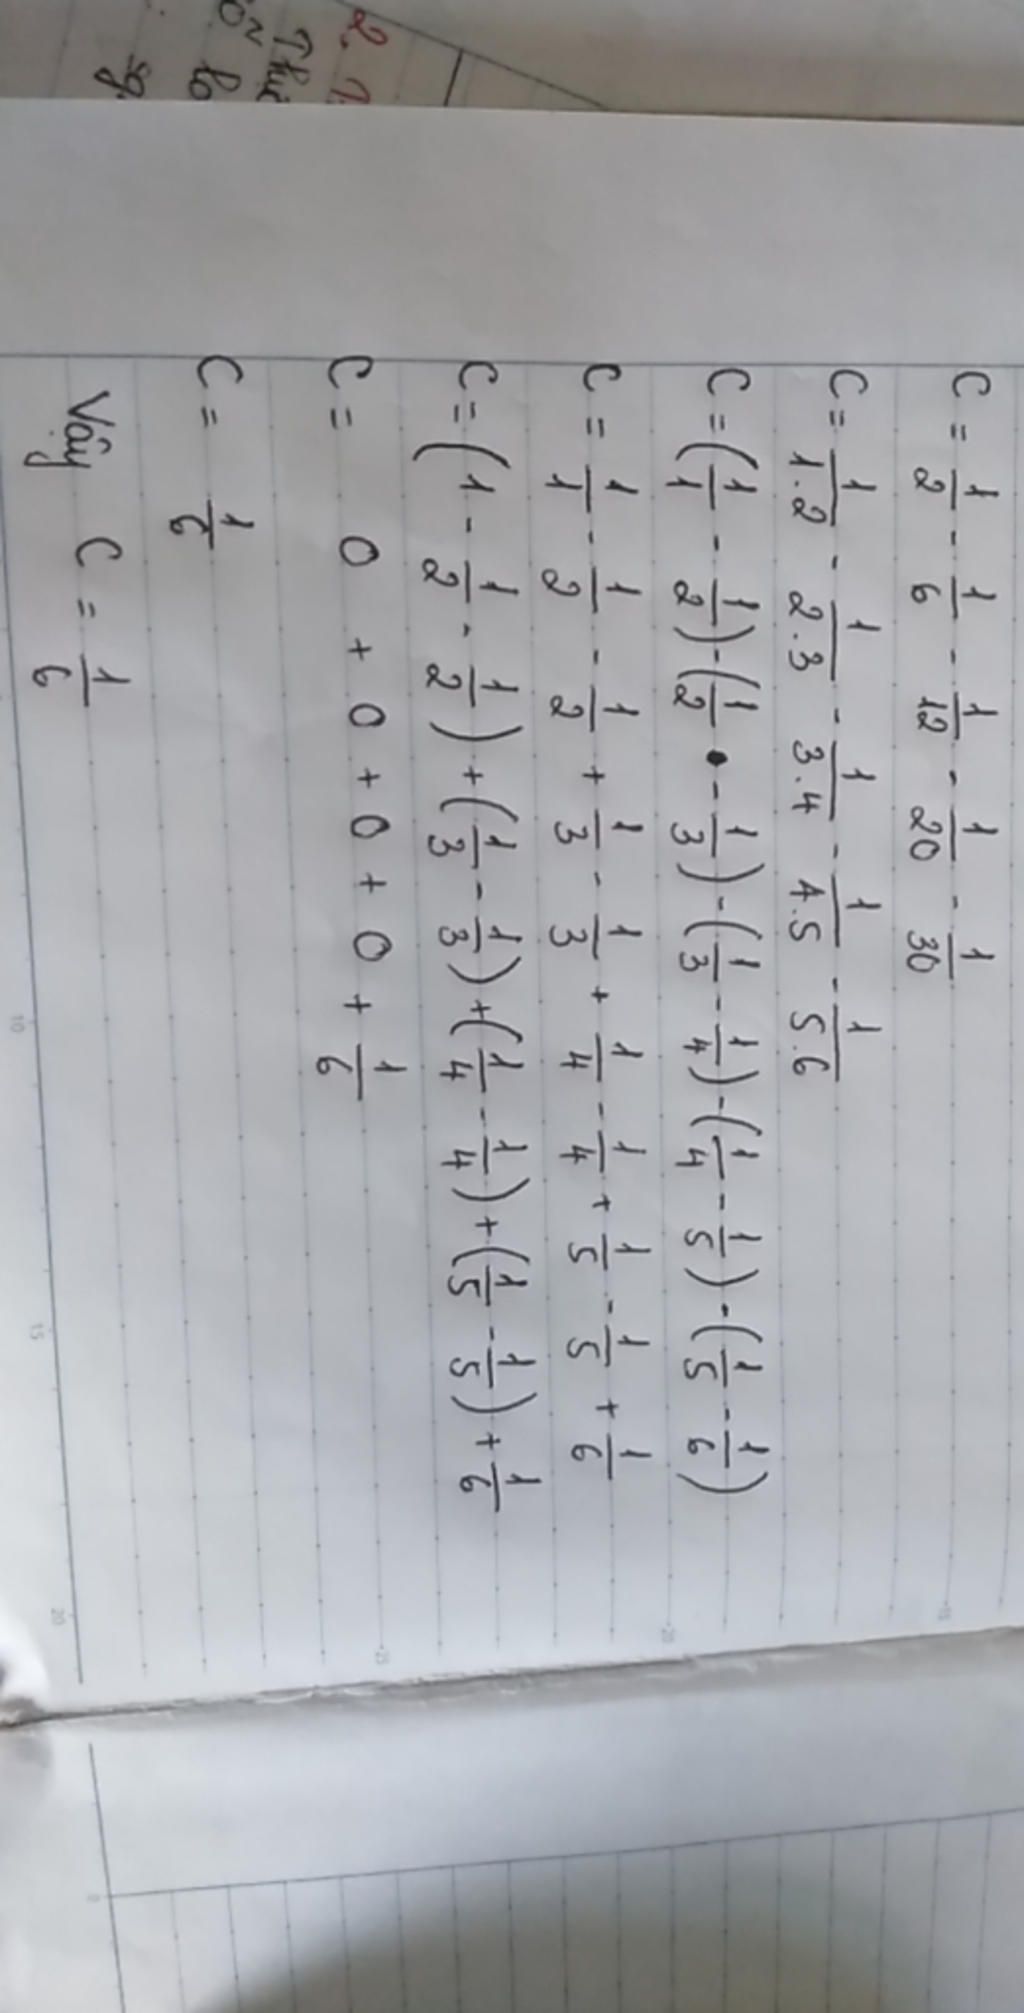 2. 1.
Thự
lo
sg.
C = 1/2 - 1/6 - 1/12 - 1/20 - 1/30
C = 1/1.2 - 1/2.3 - 1/3.4 - 1/4.5 - 1/5.6
C = (1/1 - 1/2) - (1/2 - 1/3) - (1/3 - 1/4) - (1/4 - 1/5) - (1/5 - 1/6)
C = 1/1 - 1/2 - 1/2 + 1/3 - 1/3 + 1/4 - 1/4 + 1/5 - 1/5 + 1/6
C = (1 - 1/2 - 1/2) + (1/3 - 1/3) + (1/4 - 1/4) + (1/5 - 1/5) + 1/6
C = 0 + 0 + 0 + 0 + 1/6
C = 1/6
Vậy C = 1/6
10
15
20
15
20
25
0